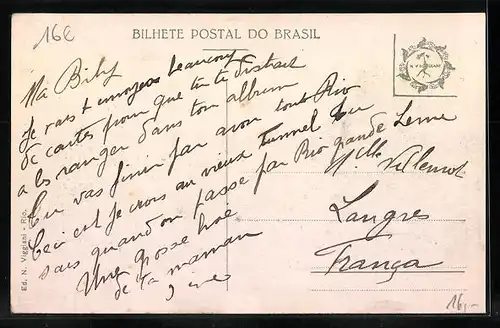 16e
BILHETE POSTAL DO BRASIL
Ma Biby
Je vais t'envoyer beaucoup
de cartes pour que tu te distrais
a les ranger dans ton album
Tu vas finir par avoir tout Rio
Ceci est je crois au vieux Tunnel tu
sais quand on passe par Rio grande Leme
Une grosse
de ta maman
Mlle Villemot
Langres
França
Ed. N. Viggiani - Rio.
16,-